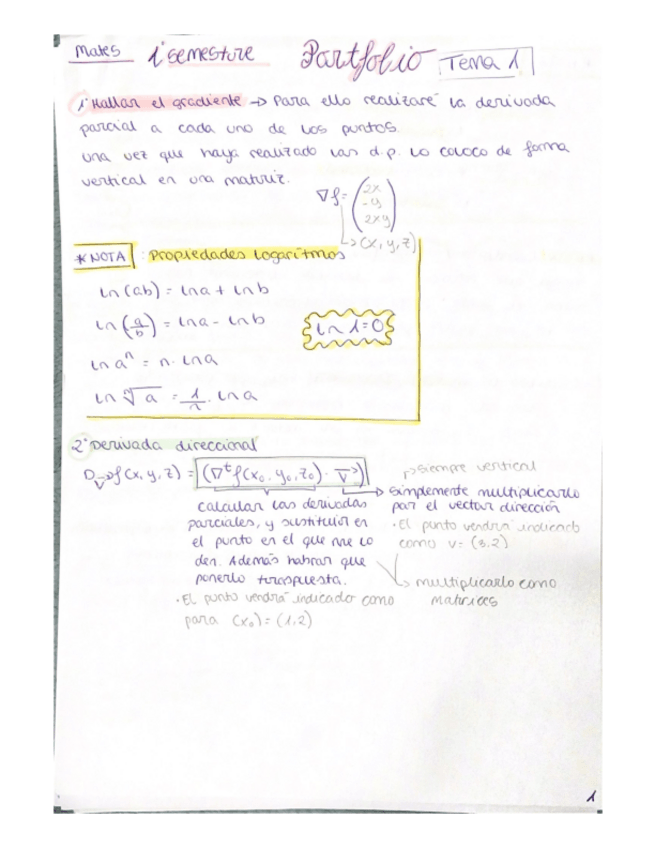 Mates 1º semestre Portfolio Tema 1
1º Hallar el gradiente → Para ello realizaré la derivada
parcial a cada uno de los puntos.
una vez que haya realizado las d.p. lo coloco de forma
vertical en una matriz.
∇f = (2x
-y
2xy)
↳ (x, y, z)
* NOTA : Propiedades logarítmos
ln (ab) = lna + lnb
ln (a/b) = lna - lnb
ln 1=0
ln aⁿ = n. lna
ln ⁿ√a = 1/n . lna
2º Derivada direccional
D_v→ f(x, y, z) = (∇ᵗ f(x₀, y₀, z₀) · v→)
→ siempre vertical
calcular las derivadas
parciales, y sustituir en
el punto en el que me lo
den. Además habrar que
ponerlo traspuesta.
· El punto vendrá indicador como
para (x₀) = (1,2)
→ simplemente multiplicarlo
por el vector dirección
· El punto vendrá indicado
como v= (3.2)
↳ multiplicarlo como
matrices
1